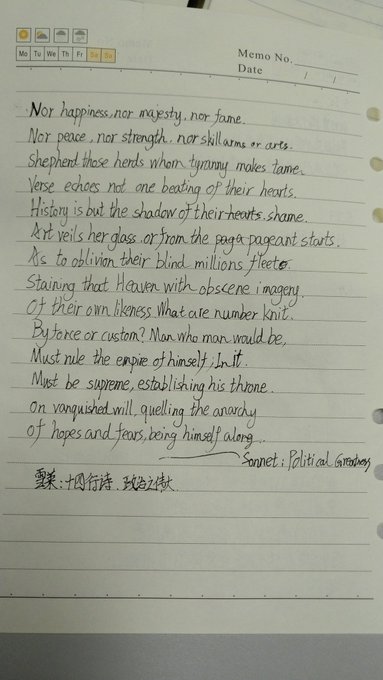 Mo Tu We Th Fr Sa Su
Memo No.
Date / /
Nor happiness, nor majesty, nor fame.
Nor peace, nor strength, nor skill arms or arts.
Shepherd those herds whom tyranny makes tame.
Verse echoes not one beating of their hearts.
History is but the shadow of their hearts. shame.
Art veils her glass. or from the pager pageant starts.
As to oblivion their blind millions fleet.
Staining that Heaven with obscene imagery.
Of their own likeness. What are number knit.
By force or custom? Man who man would be,
Must rule the empire of himself; In it.
Must be supreme, establishing his throne.
On vanquished will, quelling the anarchy
Of hopes and fears, being himself along.
Sonnet: Political Greatness
雪莱:十四行诗. 政治之伟大